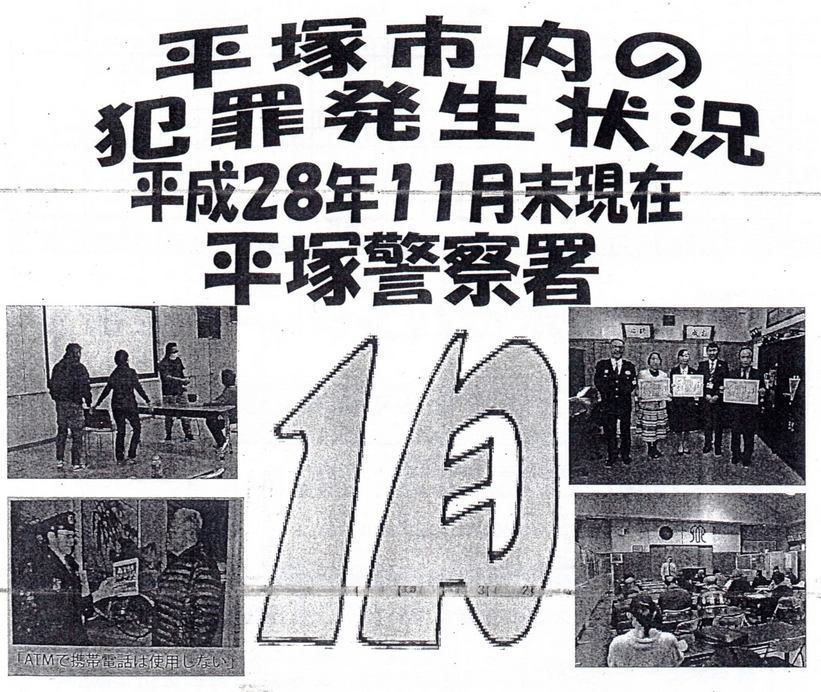 平塚市内の
犯罪発生状況
平成28年11月末現在
平塚警察署
1月
「ATMで携帯電話は使用しない」